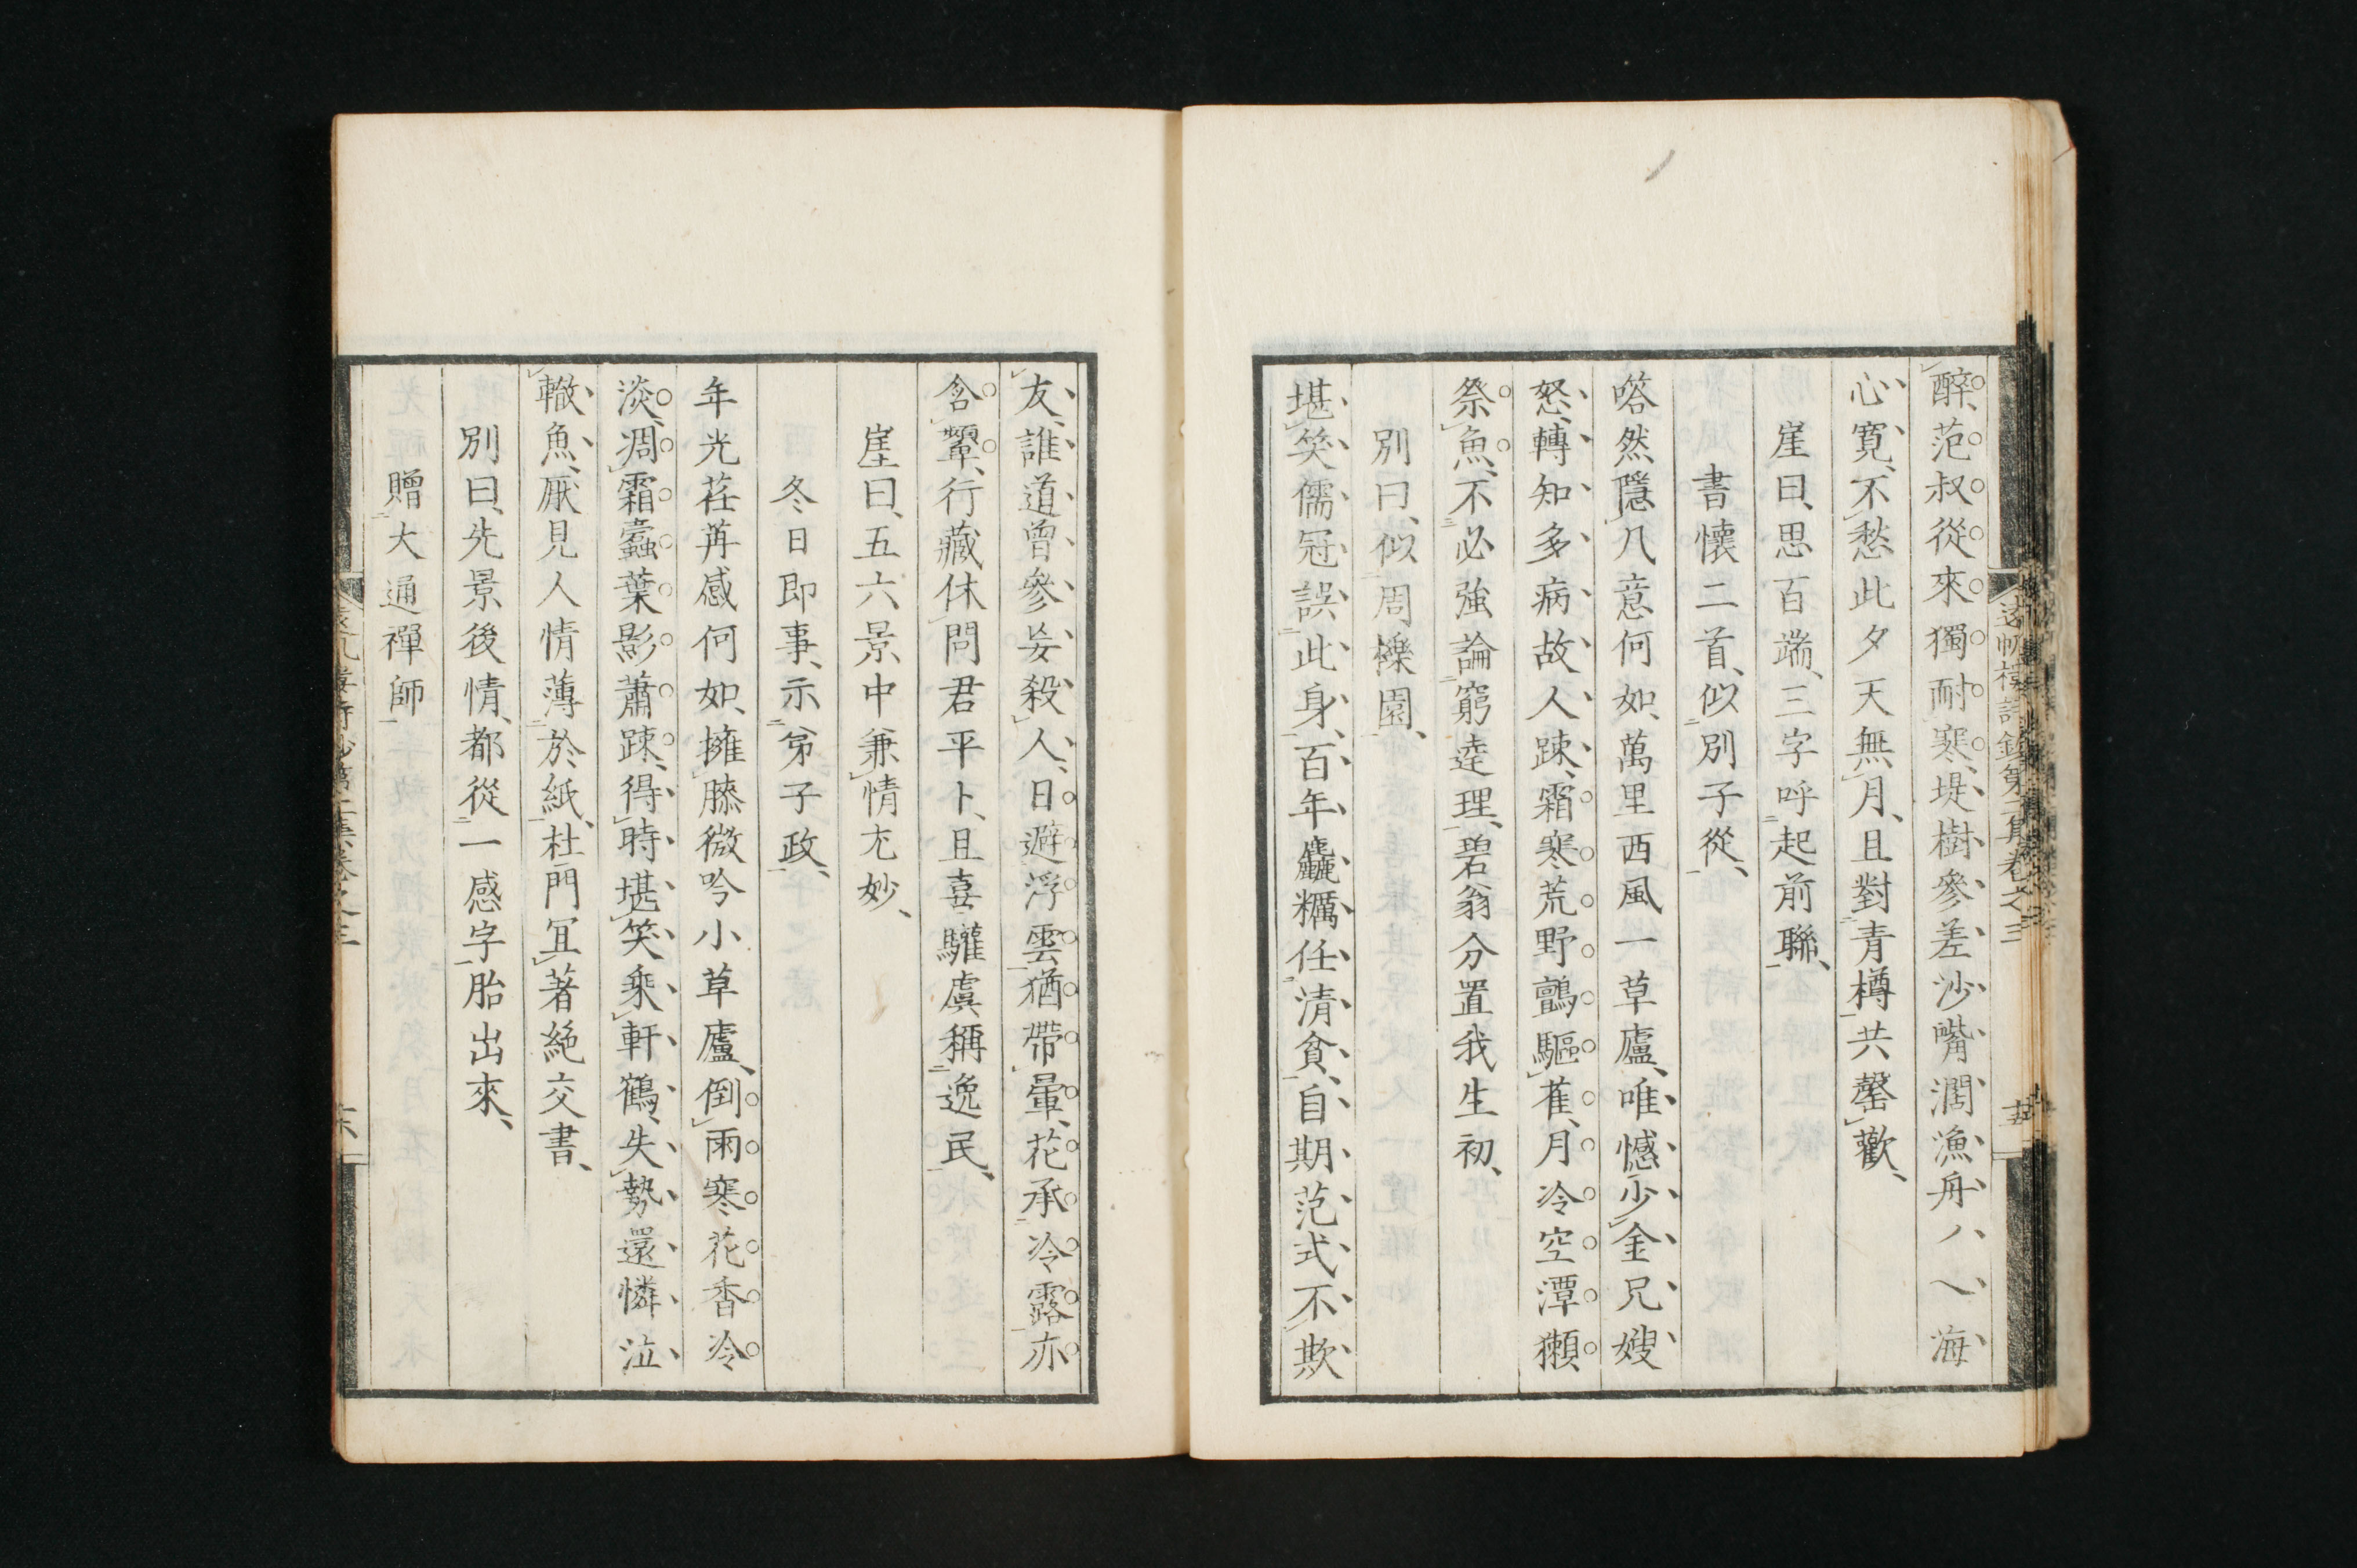 醉、范叔從來獨耐寒、堤樹參差沙嘴濶漁舟八〵海
心寛、不愁此夕天無月、且對青樽共罄歡、
崖曰、思百端、三字呼起前聯、
書懷二首、似別子從、
嗒然隱几意何如、萬里西風一草廬、唯憾少金兄嫂
怒、轉知多病故人踈、霜寒荒野鸇驅萑、月冷空潭獺
祭魚、不必強論窮逹理、碧翁分置我生初、
別曰、似周櫟園、
堪笑儒冠誤此身、百年麤糲任清貧、自期范式不欺
友、誰道曾參妄殺人、日避浮雲猶帶暈、花承冷露亦
含顰、行藏休問君平卜、且喜驩虞稱逸民、
崖曰、五六景中兼情尤妙、
冬日即事、示弟子政、
年光荏苒感何如、擁膝微吟小草廬、倒雨寒花香冷
淡、凋霜蠹葉影蕭踈、得時堪笑乘軒鶴、失勢還憐泣
轍魚、厭見人情薄於紙、杜門冝著絶交書、
別曰、先景後情、都從一感字胎出來、
贈大通禪師